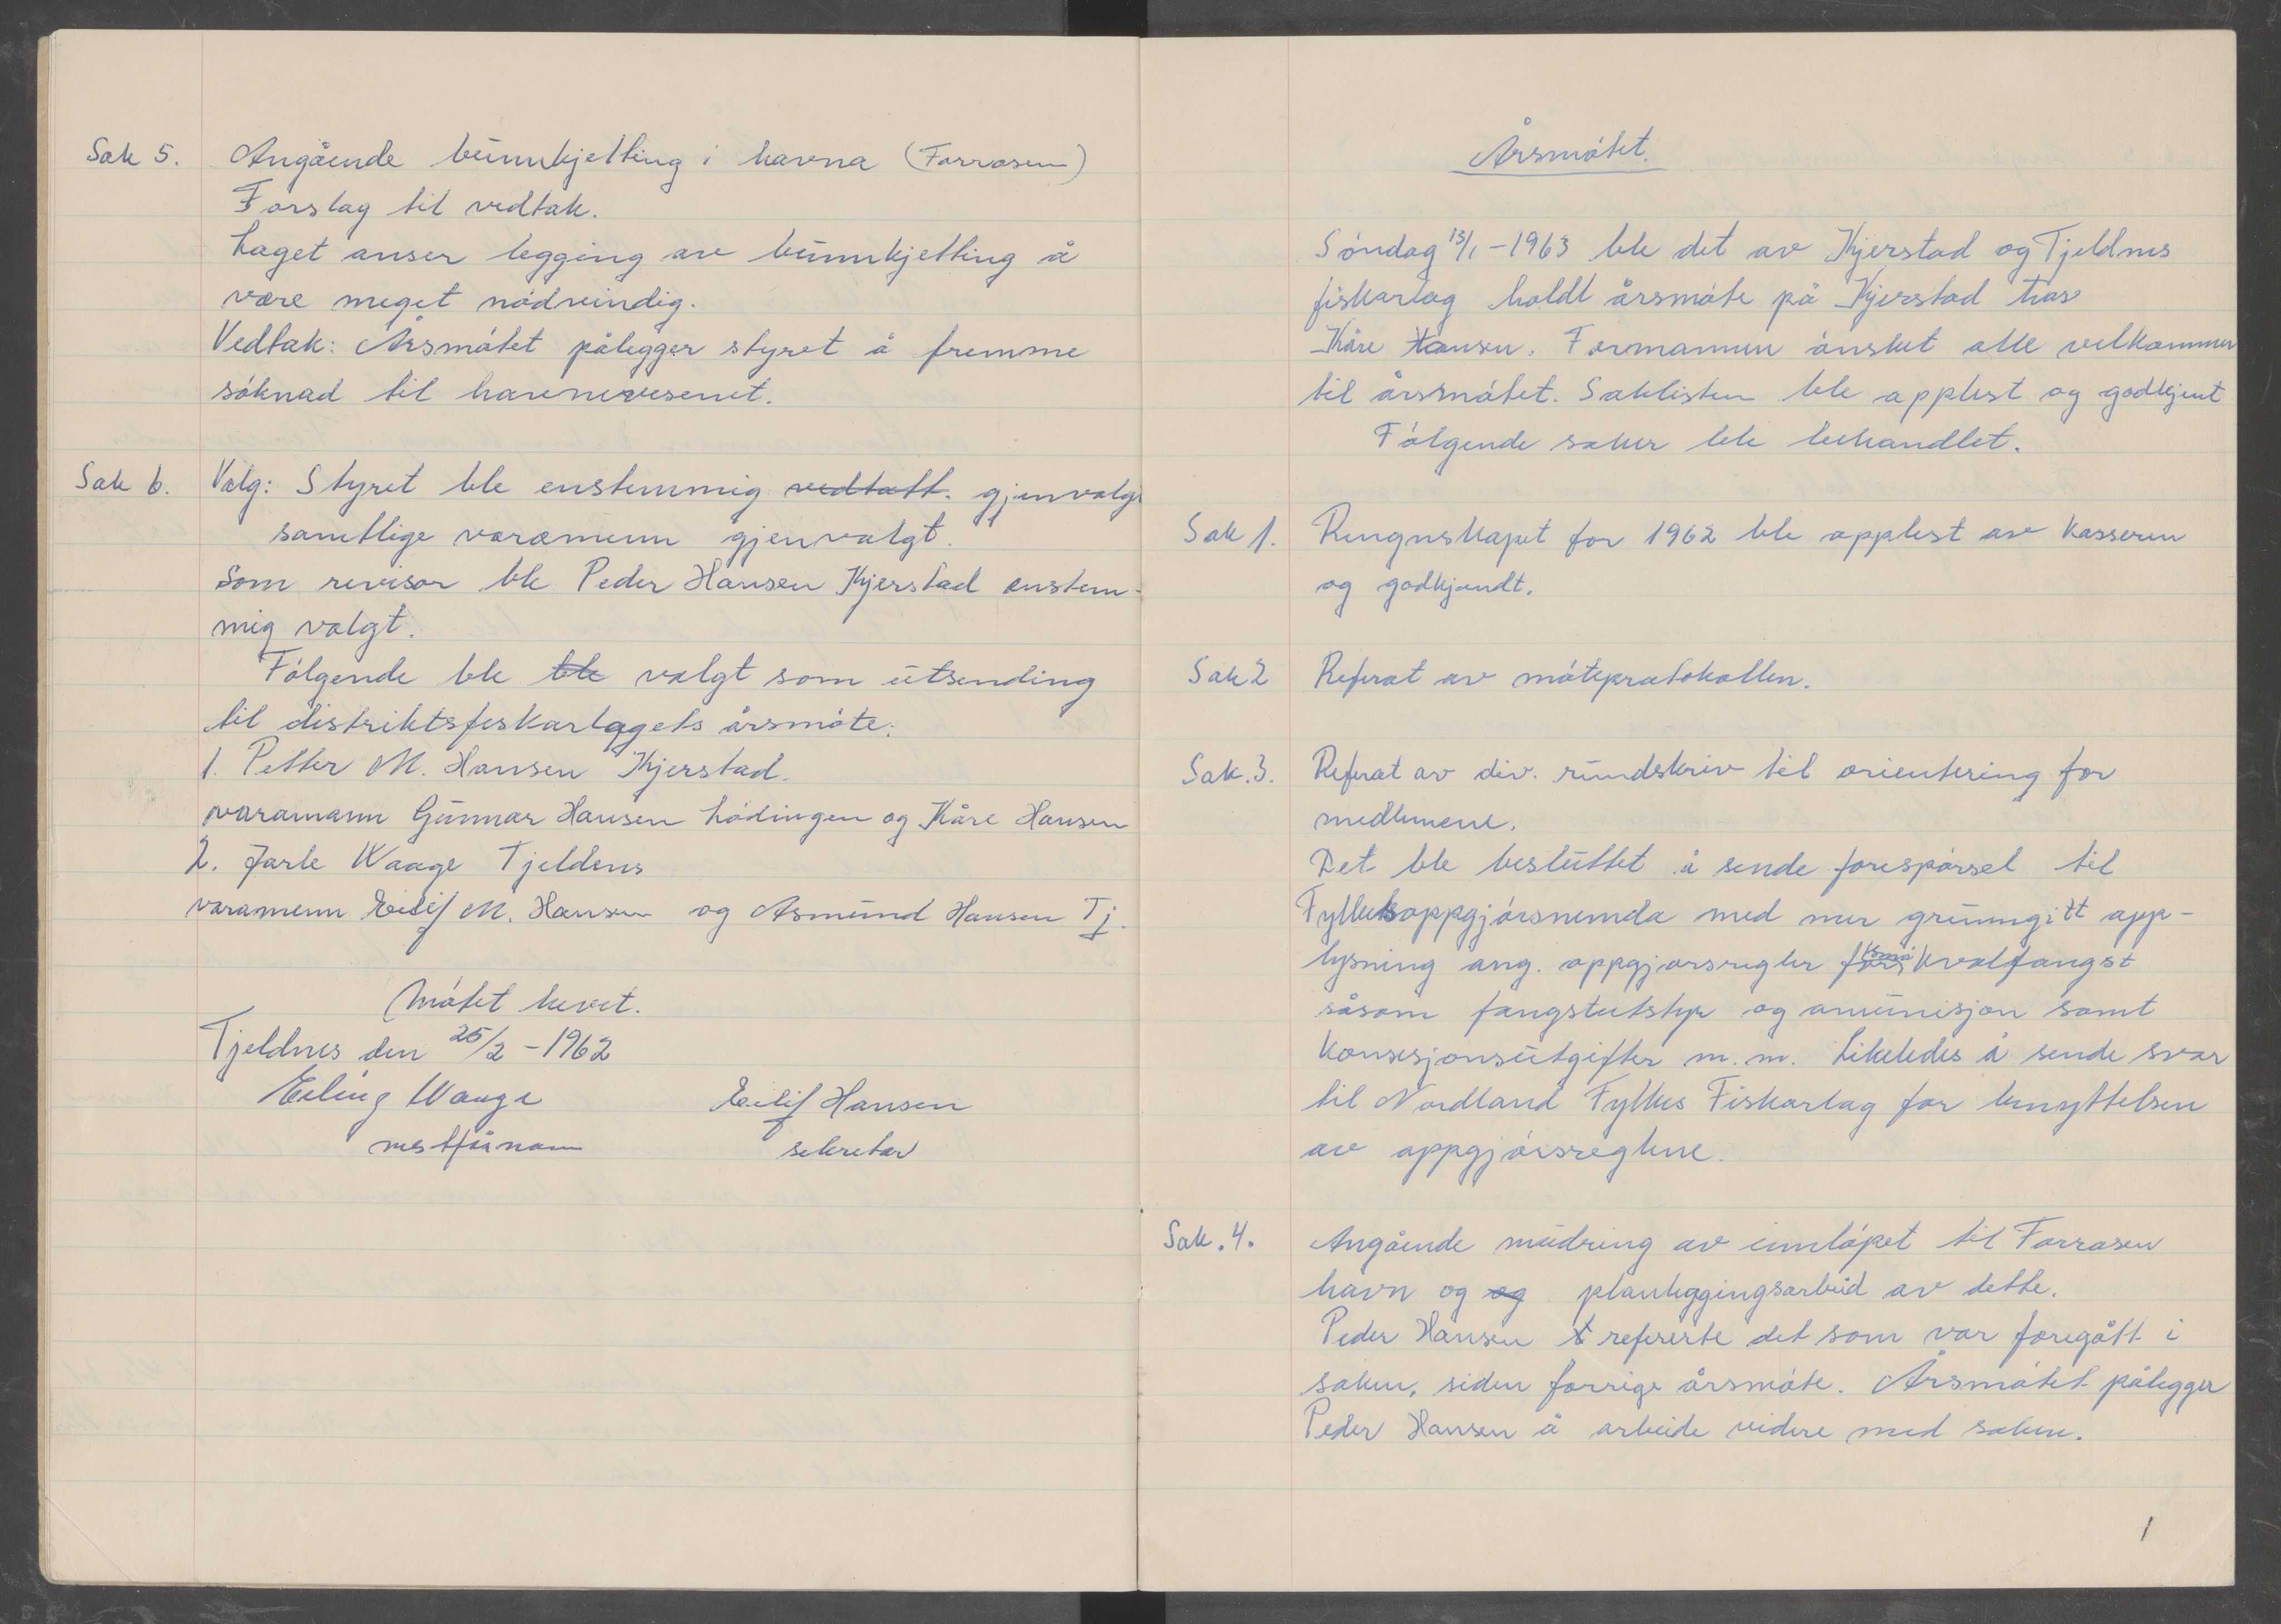 Sak 5. Angående bunnkjetting i havna (Forrosen)
Forslag til vedtak.
Laget anser legging av bunnkjetting å
være meget nödveindig.
Vedtak: Årsmötet pålegger styret å fremme
söknad til havnevesenet.
Sak 6. Valg: Styret ble enstemmig vedtatt. gjenvalgt
samtlige varamenn gjenvalgt.
Som revisor ble Peder Hansen Kjerstad enstem-
mig valgt.
Fölgende ble ble valgt som utsending
til distriktsfiskarlagets årsmöte:
1. Petter M. Hansen Kjerstad.
varamann Gunnar Hansen Lödingen og Kåre Hansen
2. Jarle Waage Tjeldens
varamenn Eilif M. Hansen og Asmund Hansen Tj.
Mötet hevet.
Tjeldnes den 25/2 - 1962
Erling Waage Eilif Hansen
nestförmann sekretær
Årsmötet.
Söndag 13/1 - 1963 ble det av Kjerstad og Tjeldnes
fiskarlag holdt årsmöte på Kjerstad hos
Kåre Hansen. Formannen önsket alle velkommen
til årsmötet. Saklisten ble opplest og godkjent
Fölgende saker ble behandlet.
Sak 1. Rengnskapet for 1962 ble opplest av kasseren
og godkjendt.
Sak 2 Referat av möteprotokollen.
Sak. 3. Referat av div. rundskriv til orientering for
medlemene.
Det ble besluttet å sende forespörsel til
Fylkesoppgjörsnemda med mer grunngitt opp-
lysning ang. oppgjorsregler for små kvalfangst
såsom fangstutstyr og amunisjon samt
konsesjonsutgifter m. m. Likeledes å sende svar
til Nordland Fylkes Fiskarlag for benyttelsen
av oppgjörsreglene.
Sak. 4. Angående mudring av innlöpet til Forrosen
havn og og planleggingsarbeid av dette.
Peder Hansen refererte det som var foregått i
saken, siden forrige årsmöte. Årsmötet pålegger
Peder Hansen å arbeide videre med saken.
1